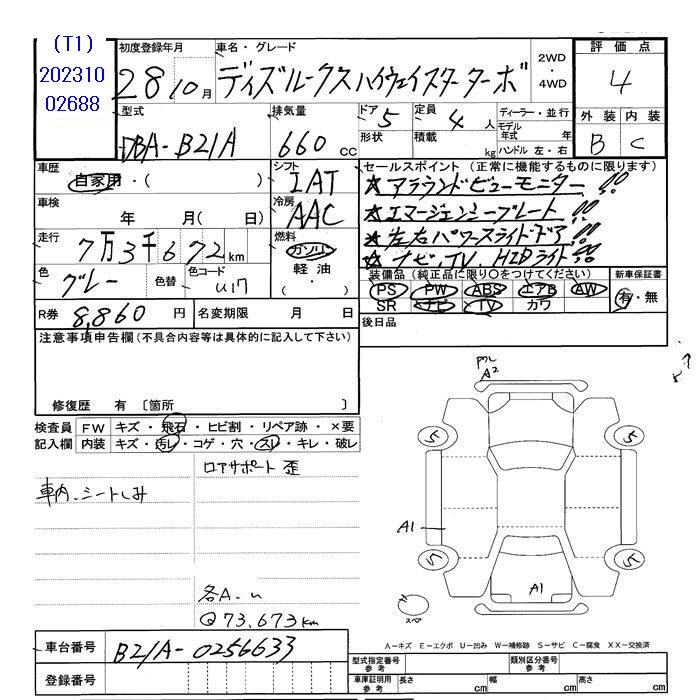 (T1)
202310
02688
初度登録年月
28 10月
車名・グレード
ディズルークスハイウェイスターターボ
2WD
・
4WD
評価点
4
型式
DBA-B21A
排気量
660 cc
ドア 5
形状
定員 4 人
積載 kg
ディーラー・並行
モデル年式 年
ハンドル 左・右
外装 内装
B C
車歴
自家用・( )
シフト
IAT
セールスポイント (正常に機能するものに限ります)
★アラウンドビューモニター!!
★エマージェンシーブレート!!
★左右パワースライドドア!!
★ナビ,TV,HIDライト!!
車検 年 月(日)
冷房
AAC
走行 7万3千672km
燃料
ガソリン
軽油
・( )
色 グレー
色替
色コード U17
装備品 (純正品に限り○をつけてください)
PS PW ABS エアB AW
SR ナビ TV カワ
新車保証書
有・無
R券 8,860 円
名変期限 月 日
後日品
注意事項申告欄 (不具合内容等は具体的に記入して下さい)
修復歴 有 〔箇所 〕
検査員記入欄
FW キズ・飛石・ヒビ割・リペア跡・×要
内装 キズ・汚レ・コゲ・穴・スレ・キレ・破レ
ロアサポート歪
車内、シートしみ
各A.u
@73,673km
A2
5 5
A1
5 5
A1
スペア
A−キズ E−エクボ U−凹み W−補修跡 S−サビ C−腐食 XX−交換済
車台番号 B21A-0256633
登録番号
型式指定番号 参考
類別区分番号 参考
車庫証明用 参考
長さ cm 幅 cm 高さ cm